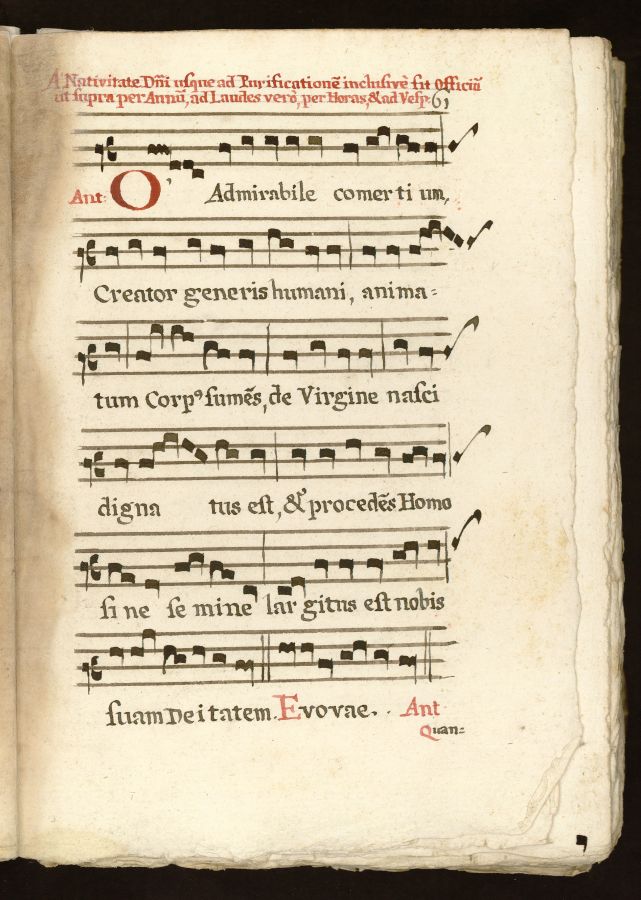 A Nativitate Dñi usque ad Purificationē inclusivè fit Officiū
ut supra per Annū, ad Laudes verò, per Horas, & ad Vesp: 61
Ant: O Admirabile comerti um,
Creator generis humani, anima=
tum Corpꝰ sumēs, de Virgine nasci
digna tus est, & procedēs Homo
si ne se mine lar gitus est nobis
suam Deitatem. Evovae. Ant
Quan=